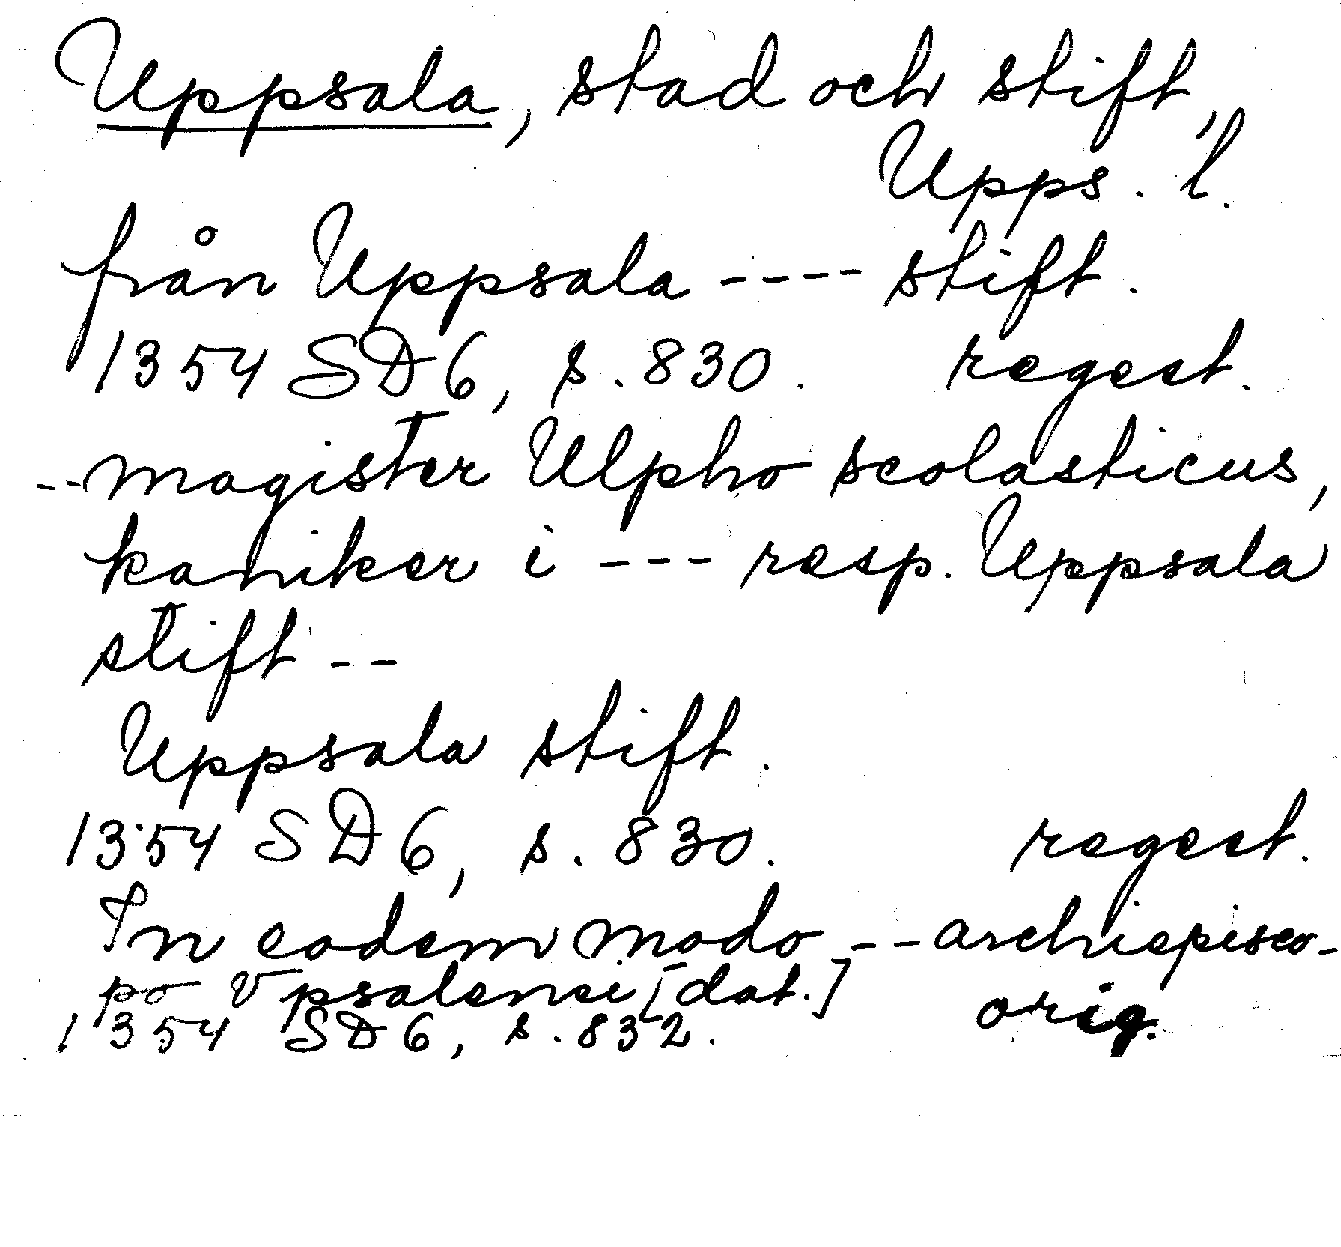 Uppsala, stad och stift,
Upps. l.
från Uppsala ---- stift.
1354 SD 6, s. 830. regest.
-- magister Ulpho scolasticus,
kaniker i --- resp. Uppsala
stift --
Uppsala stift.
1354 SD 6, s. 830. regest.
In eodem modo -- archiepisco-
po Vpsalensi [dat.]
1354 SD 6, s. 832. orig.